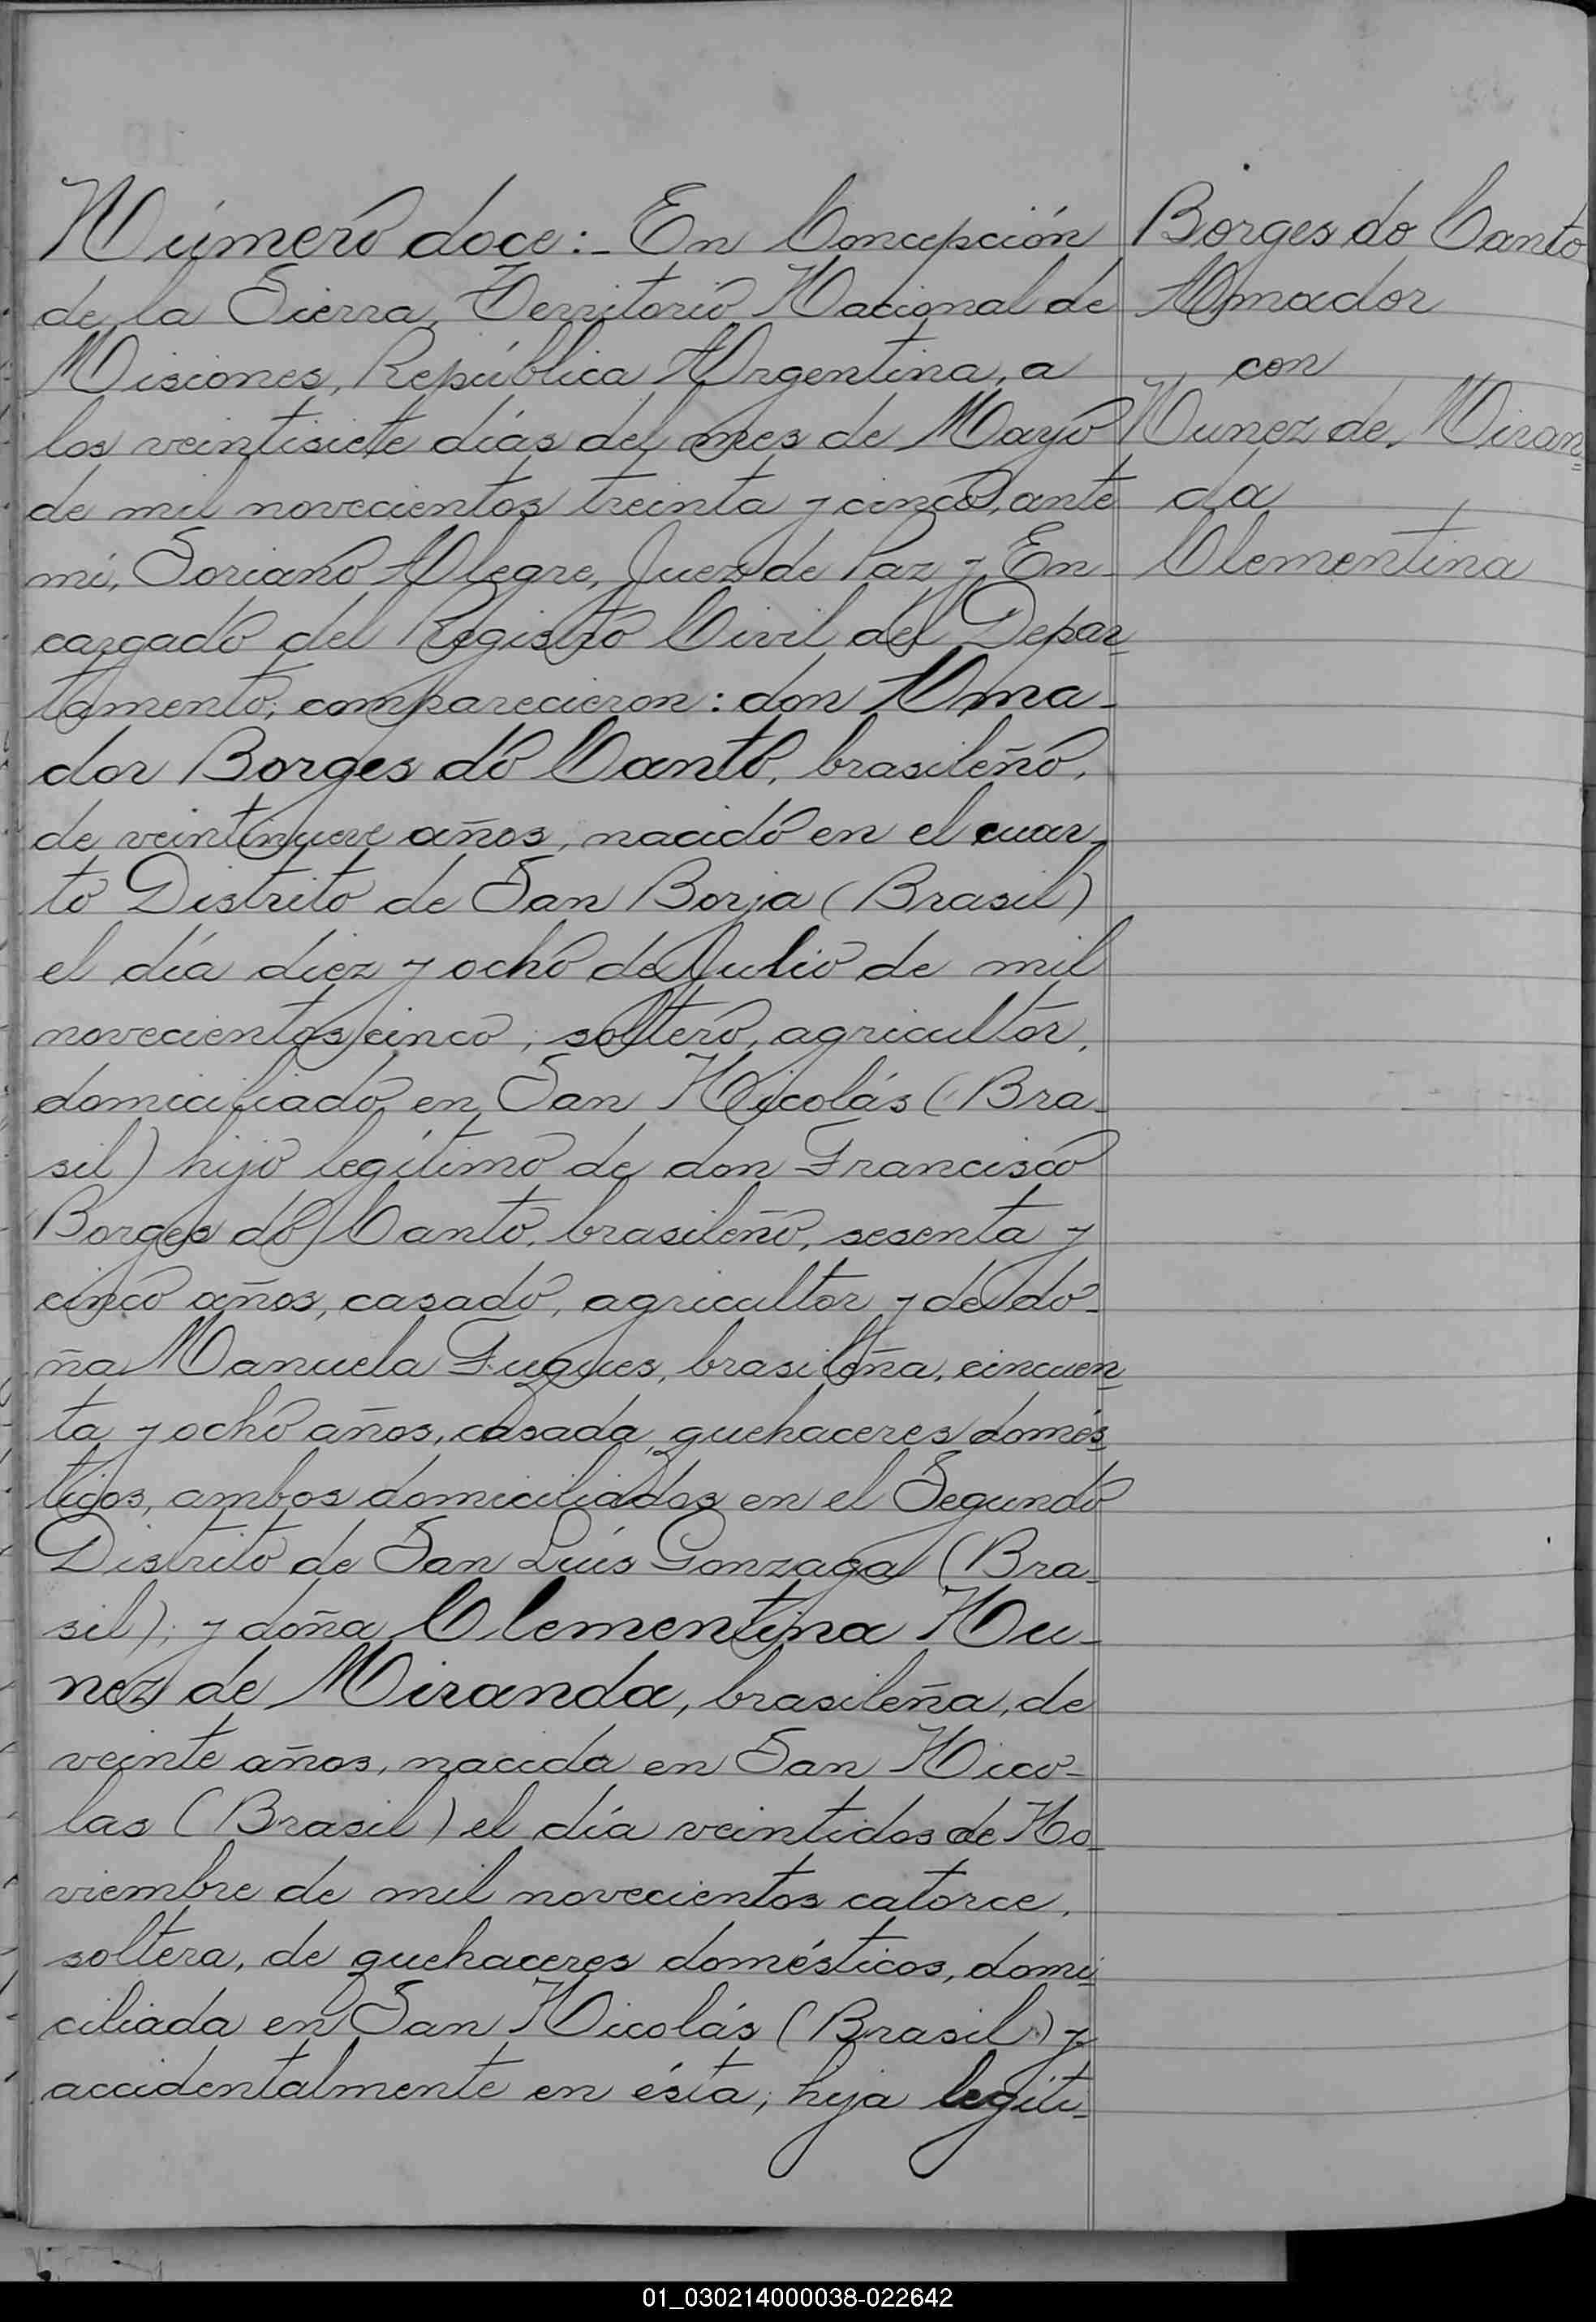 Número doce:- En Concepción
de la Sierra, Territorio Nacional de
Misiones, República Argentina, a
los veintisiete días del mes de Mayo
de mil novecientos treinta y cinco, ante
mi, Soriano Alegre, Juez de Paz y En-
cargado del Registro Civil del Depar-
tamento, comparecieron: don Ama-
dor Borges do Canto, brasileño,
de veintinueve años, nacido en el cuar-
to Distrito de San Borja (Brasil)
el día diez y ocho de Julio de mil
novecientos cinco, soltero, agricultor,
domiciliado en San Nicolás (Bra-
sil) hijo legítimo de don Francisco
Borges do Canto, brasileño, sesenta y
cinco años, casado, agricultor y de do-
ña Manuela Fugues, brasileña, cincuen-
ta y ocho años, casada, quehaceres domés-
ticos, ambos domiciliados en el Segundo
Distrito de San Luís Gonzaga (Bra-
sil); y doña Clementina Nu-
nez de Miranda, brasileña, de
veinte años, nacida en San Nico-
las (Brasil) el día veintidos de No-
viembre de mil novecientos catorce,
soltera, de quehaceres domésticos, domi-
ciliada en San Nicolás (Brasil) y
accidentalmente en ésta; hija legíti-
Borges do Canto
Amador
con
Nunez de Miran-
da
Clementina
01_030214000038-022642